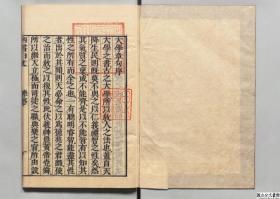 大學章句序
大學之書古之大學所以教人之法也蓋自天
降生民則既莫不與之以仁義禮智之性矣然
其氣質之稟或不能齊是以不能皆有以知其
性之所有而全之也一有聰明睿智能盡其性
者出於其閒則天必命之以為億兆之君師使
之治而教之以復其性此伏羲神農黃帝堯舜
所以繼天立極而司徒之職典樂之官所由設